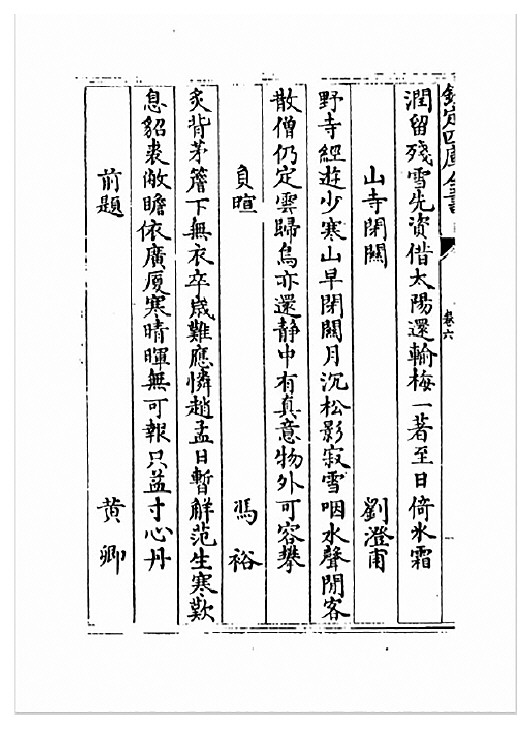 欽定四庫全書
卷六
潤留殘雪先資借太陽還輸梅一著至日倚氷霜
山寺閉關 劉澄甫
野寺經遊少寒山早閉關月沉松影寂雪咽水聲閒客
散僧仍定雲歸鳥亦還静中有真意物外可容攀
負暄 馮裕
炙背茅簷下無衣卒歲難應憐趙孟日暫解范生寒歎
息貂裘敝瞻依廣厦寒晴暉無可報只益寸心丹
前題 黄卿